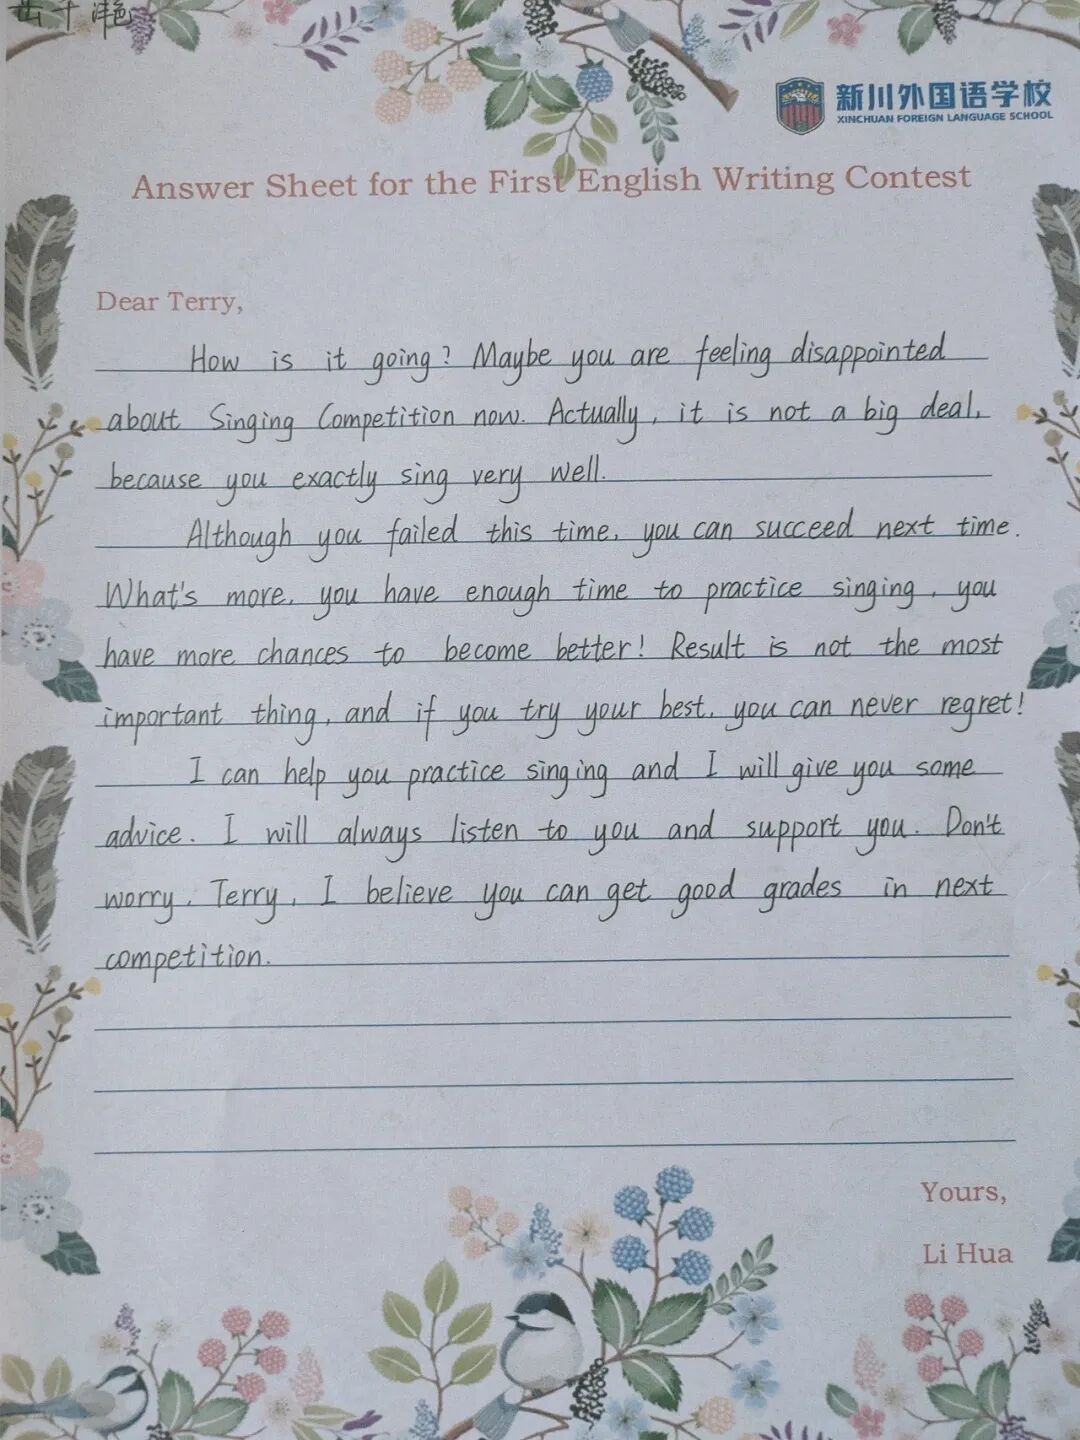 新川外国语学校
XINCHUAN FOREIGN LANGUAGE SCHOOL
Answer Sheet for the First English Writing Contest
Dear Terry,
How is it going? Maybe you are feeling disappointed
about Singing Competition now. Actually, it is not a big deal,
because you exactly sing very well.
Although you failed this time, you can succeed next time.
What's more, you have enough time to practice singing, you
have more chances to become better! Result is not the most
important thing, and if you try your best, you can never regret!
I can help you practice singing and I will give you some
advice. I will always listen to you and support you. Don't
worry, Terry, I believe you can get good grades in next
competition.
Yours,
Li Hua